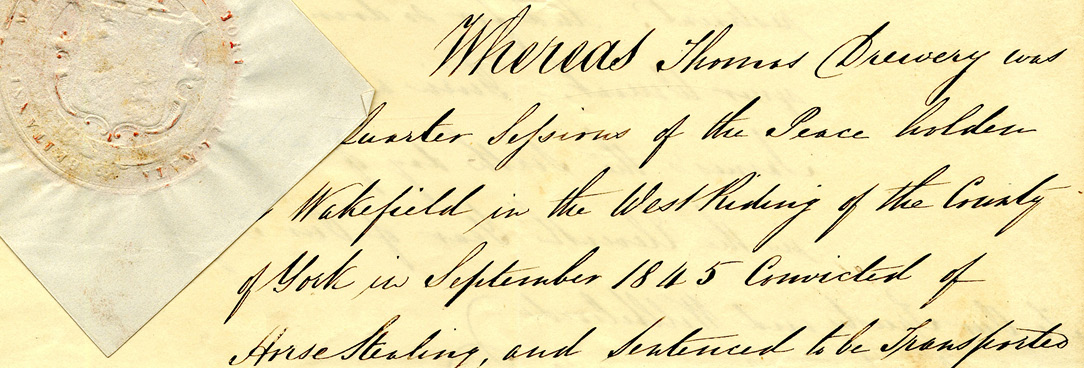 Whereas Thomas Drewery was
Quarter Sessions of the Peace holden
Wakefield in the West Riding of the County
of York in September 1845 Convicted of
Horse Stealing, and Sentenced to be Transported